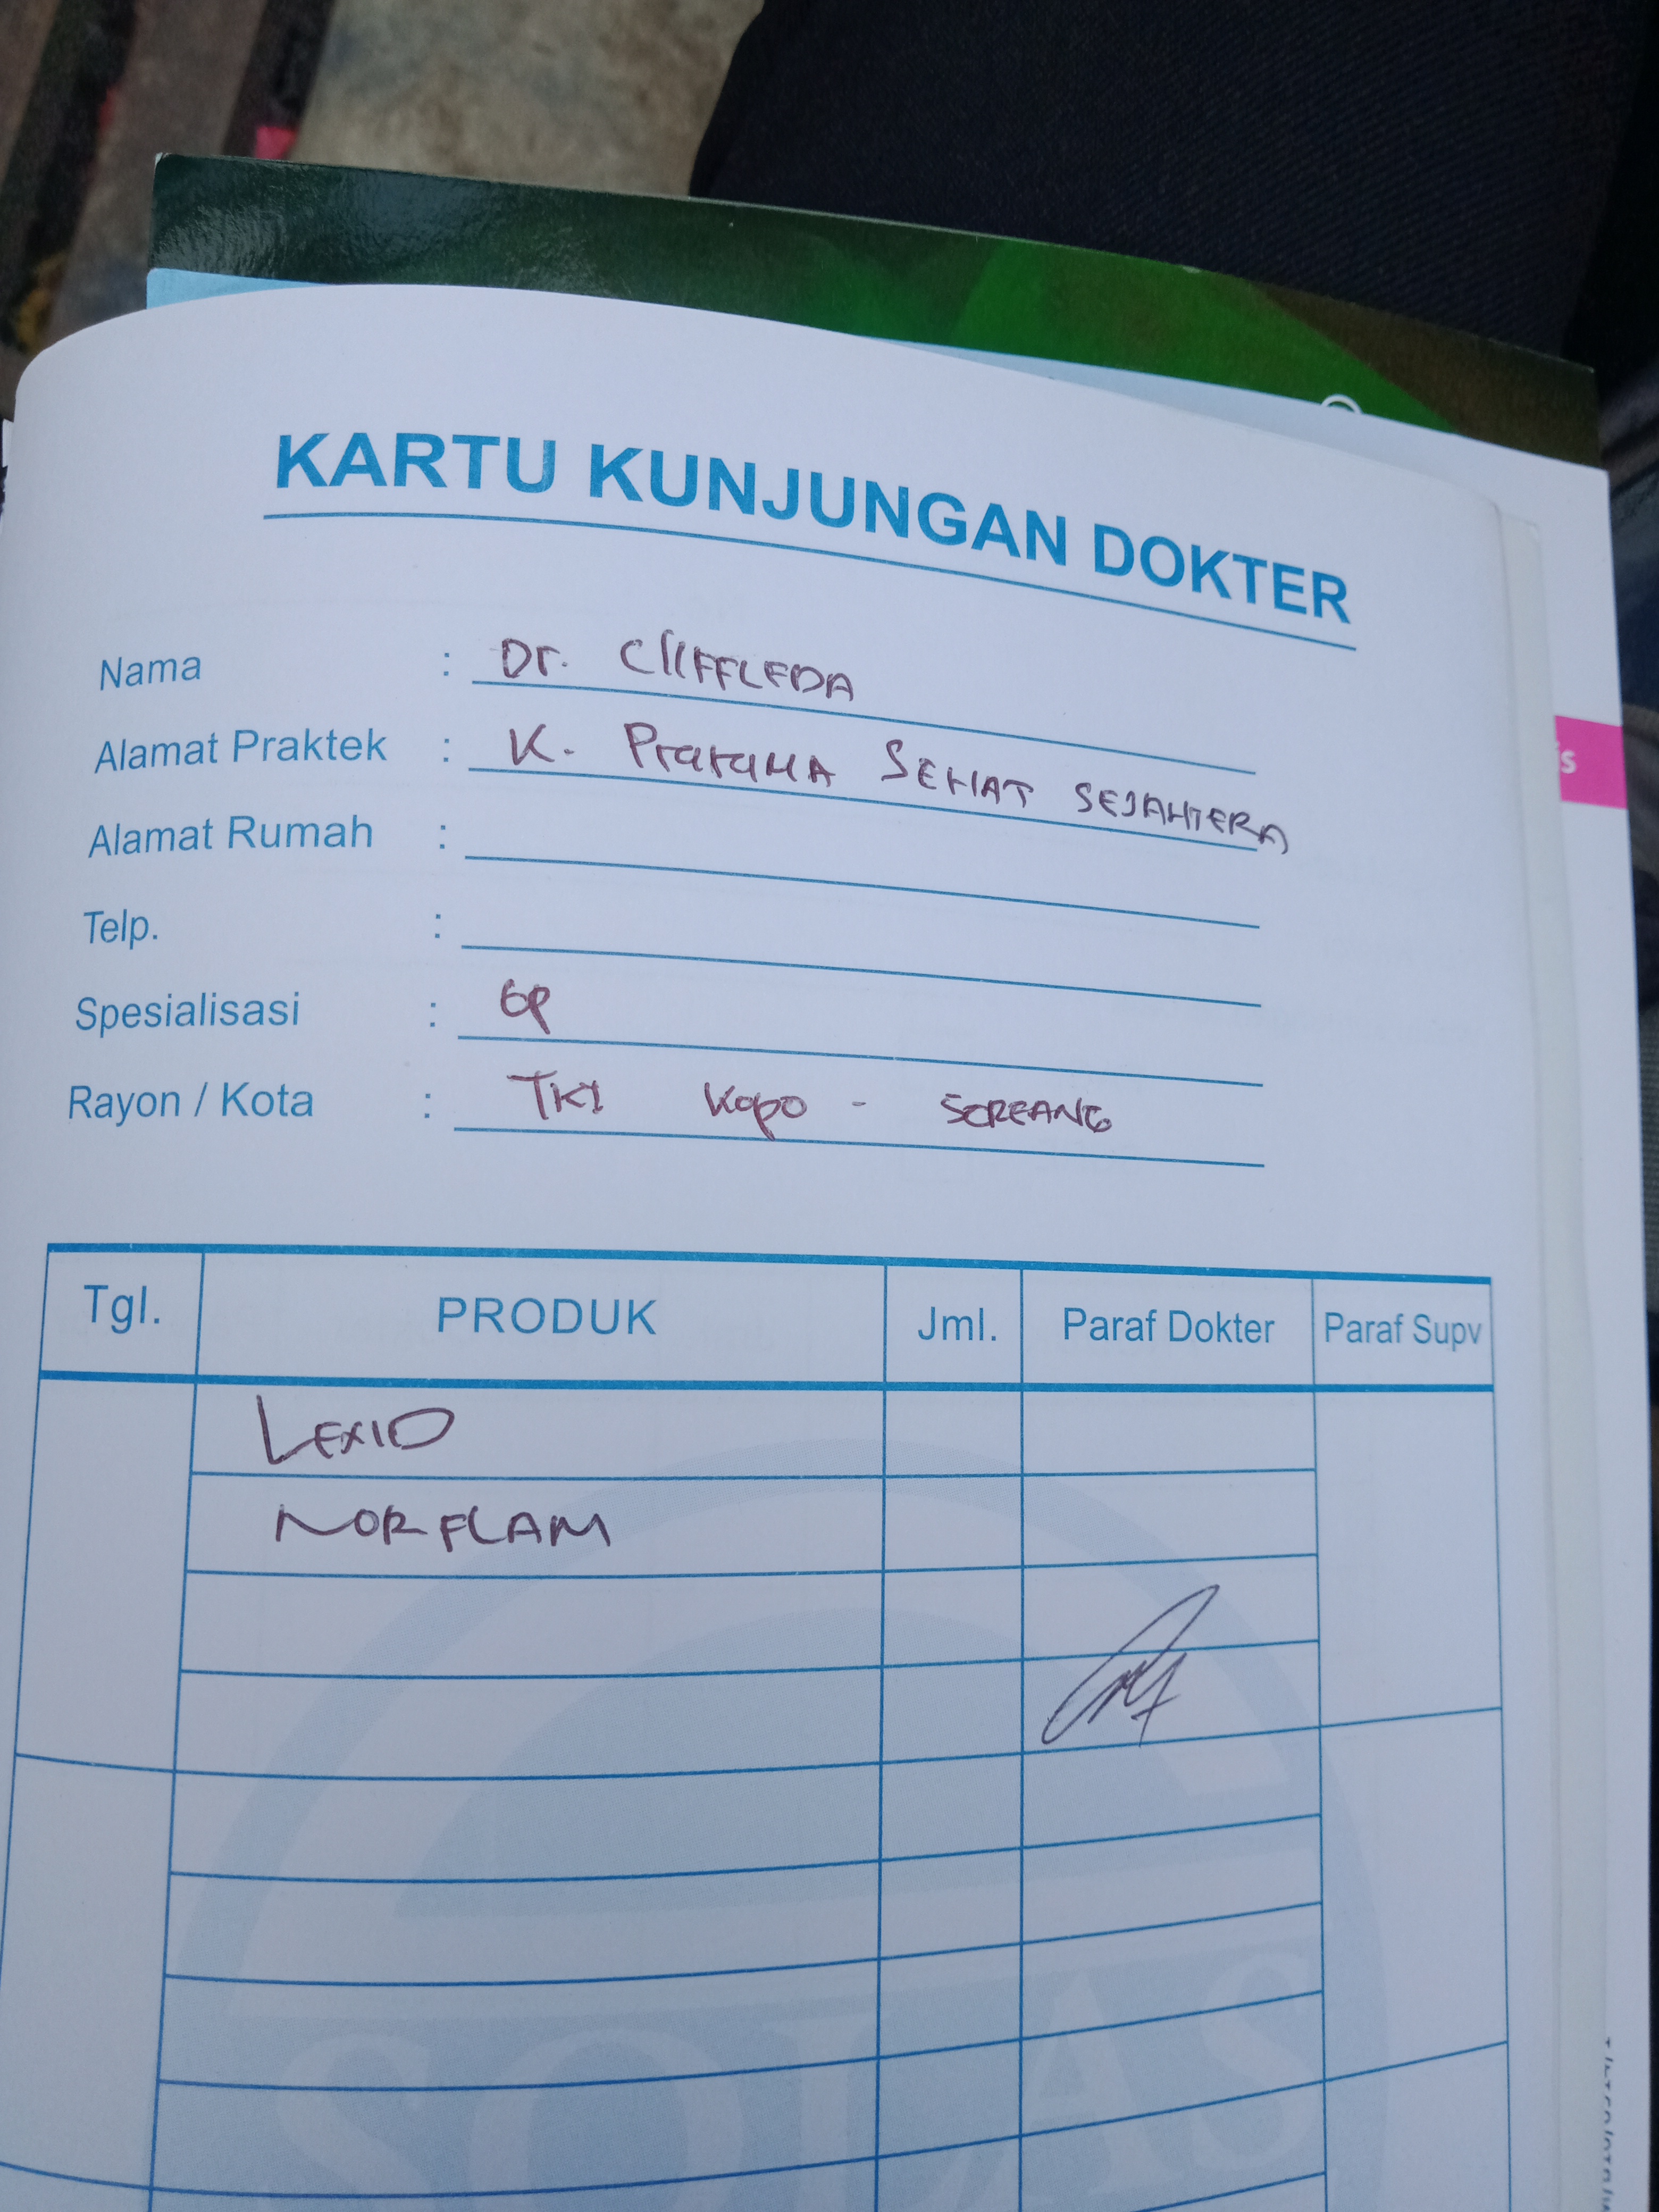 KARTU KUNJUNGAN DOKTER
Nama : Dr. ClIFFLEDA
Alamat Praktek : K. PrataMA SEHAT SEJAHTERA
Alamat Rumah :
Telp. :
Spesialisasi : GP
Rayon / Kota : TKI Kopo - SOREANG
Tgl. PRODUK Jml. Paraf Dokter Paraf Supv
LEXID
NORFLAM
SOLAS
s